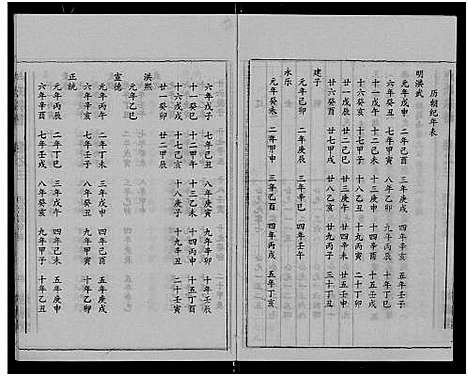 历朝纪年表
明洪武
元年戊申 二年己酉 三年庚戌 四年辛亥 五年壬子
六年癸丑 七年甲寅 八年乙卯 九年丙辰 十年丁巳
十一戊午 十二己未 十三庚申 十四辛酉 十五壬戌
十六癸亥 十七甲子 十八乙丑 十九丙寅 二十丁卯
廿一戊辰 廿二己巳 廿三庚午 廿四辛未 廿五壬申
廿六癸酉 廿七甲戌 廿八乙亥 廿九丙子 三十丁丑
建子
元年己卯 二年庚辰 三年辛巳 四年壬午
永乐
元年癸未 二年甲申 三年乙酉 四年丙戌 五年丁亥
六年戊子 七年己丑 八年庚寅 九年辛卯 十年壬辰
十一癸巳 十二甲午 十三乙未 十四丙申 十五丁酉
十六戊戌 十七己亥 十八庚子 十九辛丑 二十壬寅
廿一癸卯 廿二甲辰
洪熙
元年乙巳
宣德
元年丙午 二年丁未 三年戊申 四年己酉 五年庚戌
六年辛亥 七年壬子 八年癸丑 九年甲寅 十年乙卯
正统
元年丙辰 二年丁巳 三年戊午 四年己未 五年庚申
六年辛酉 七年壬戌 八年癸亥 九年甲子 十年乙丑